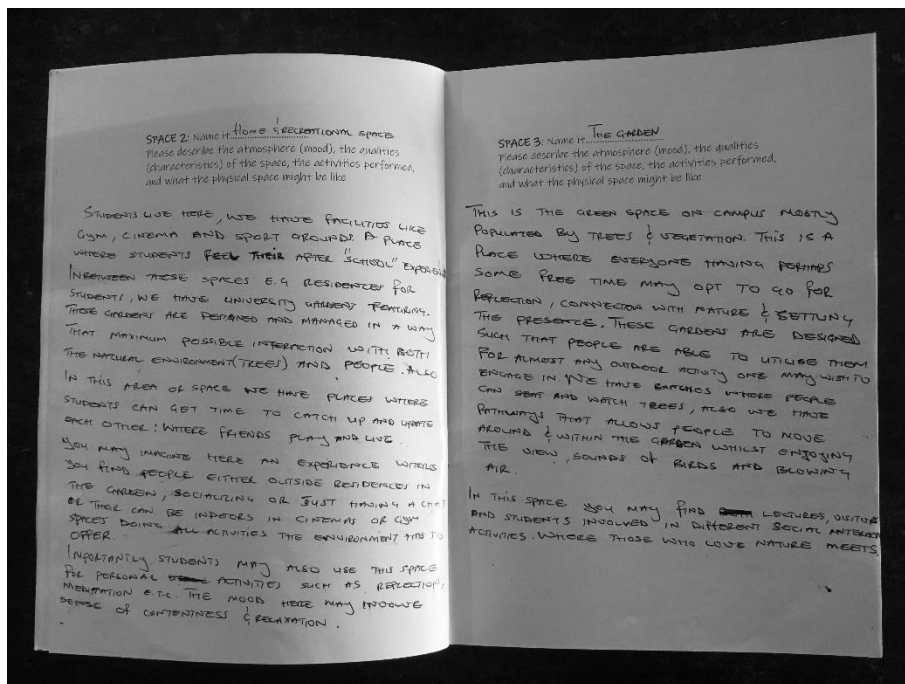 SPACE 2: Name it Home & RECREATIONAL SPACE
Please describe the atmosphere (mood), the qualities
(characteristics) of the space, the activities performed,
and what the physical space might be like
STUDENTS LIVE HERE, WE HAVE FACILITIES LIKE
GYM, CINEMA AND SPORT GROUNDS. A PLACE
WHERE STUDENTS FEEL THEIR AFTER "SCHOOL" EXPERIENCE
INBETWEEN THESE SPACES E.G RESIDENCES FOR
STUDENTS, WE HAVE UNIVERSITY GARDENS FEATURING.
THESE GARDENS ARE DESIGNED AND MANAGED IN A WAY
THAT MAXIMUM POSSIBLE INTERACTION WITH BOTH
THE NATURAL ENVIRONMENT (TREES) AND PEOPLE. ALSO
IN THIS AREA OR SPACE WE HAVE PLACES WHERE
STUDENTS CAN GET TIME TO CATCH UP AND UPDATE
EACH OTHER: WHERE FRIENDS PLAY AND LIVE.
YOU MAY IMAGINE HERE AN EXPERIENCE WHERE
YOU FIND PEOPLE EITHER OUTSIDE RESIDENCES IN
THE GARDEN, SOCIALIZING OR JUST HAVING A CHAT
OR THEIR CAN BE INDOORS IN CINEMAS OR GYM
SPACES DOING ALL ACTIVITIES THE ENVIRONMENT HAS TO
OFFER.
IMPORTANTLY STUDENTS MAY ALSO USE THIS SPACE
FOR PERSONAL ACTIVITIES SUCH AS REFLECTION,
MEDITATION E.T.C. THE MOOD HERE MAY INVOLVE
SENSE OF CONTENTNESS & RELAXATION.
SPACE 3: Name it THE GARDEN
Please describe the atmosphere (mood), the qualities
(characteristics) of the space, the activities performed,
and what the physical space might be like
THIS IS THE GREEN SPACE ON CAMPUS MOSTLY
POPULATED BY TREES & VEGETATION. THIS IS A
PLACE WHERE EVERYONE HAVING PERHAPS
SOME FREE TIME MAY OPT TO GO FOR
REFLECTION, CONNECTION WITH NATURE &
THE PRESENCE. THESE GARDENS ARE DESIGNED
SUCH THAT PEOPLE ARE ABLE TO UTILISE THEM
FOR ALMOST ANY OUTDOOR ACTIVITY ONE MAY WISH TO
ENGAGE IN. WE HAVE WHERE PEOPLE
CAN SEAT AND WATCH TREES, ALSO WE HAVE
PATHWAYS THAT ALLOWS PEOPLE TO MOVE
AROUND & WITHIN THE GARDEN WHILST ENJOYING
THE VIEW, SOUNDS OF BIRDS AND BLOWING
AIR.
IN THIS SPACE YOU MAY FIND LECTURES, VISITORS
AND STUDENTS INVOLVED IN DIFFERENT SOCIAL
ACTIVITIES. WHERE THOSE WHO LOVE NATURE MEETS.